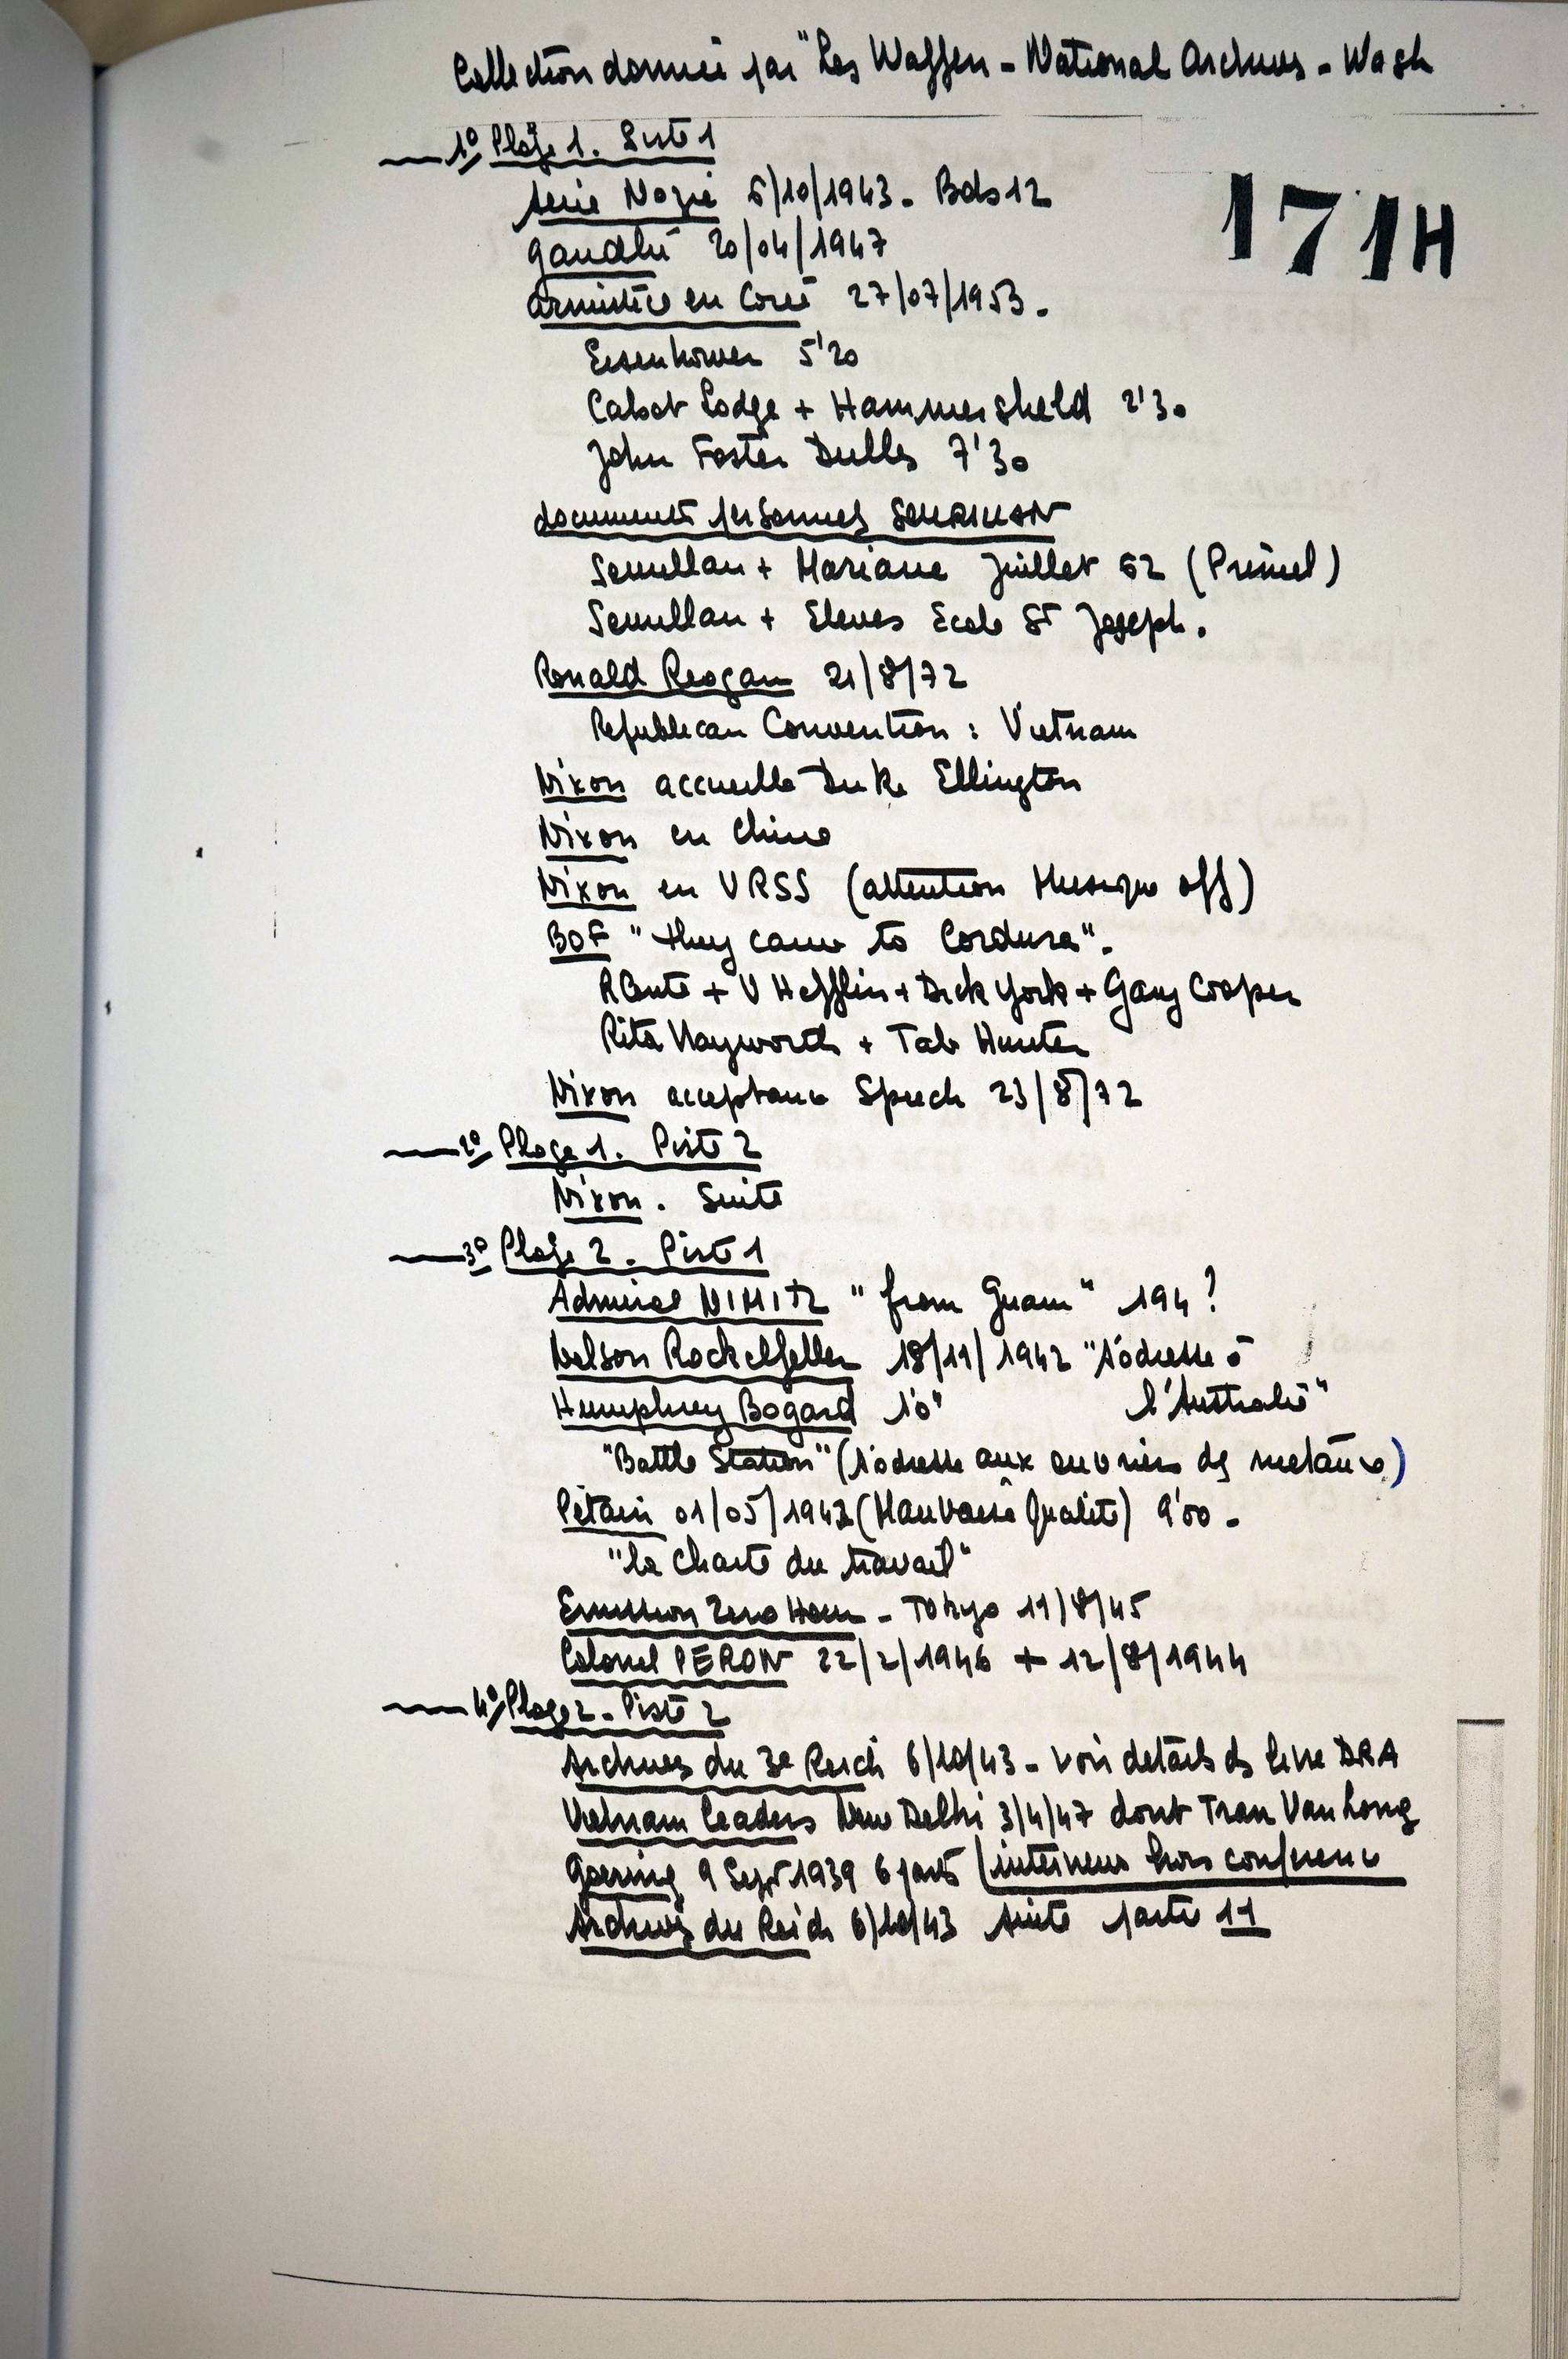 Collection donnée par "Les Waffen - National Archives - Wash
1º Plage 1. Piste 1
171H
Série Nazie 6/10/1943. Bds 12
Gandhi 20/04/1947
Armistice en Corée 27/07/1953.
Eisenhower 5'20
Cabot Lodge + Hammersheld 2'30
John Foster Dulles 7'30
documents personnels
+ Mariane Juillet 62 (Primel)
+ Eleves Ecole St Joseph.
Ronald Reagan 21/8/72
Republican Convention : Vietnam
Nixon accueille Duke Ellington
Nixon en Chine
Nixon en URSS (attention Musique off)
BOF "they came to Cordura".
R Conte + V Hefflin + Dick York + Gary Cooper
Rita Hayworth + Tab Hunter
Nixon acceptance Speech 23/8/72
2º Plage 1. Piste 2
Nixon. Suite
3º Plage 2. Piste 1
Admiral NIMITZ "from Guam" 194?
Nelson Rockelfeller 18/11/1942 "s'adresse à
l'Australie"
Humphrey Bogard 10"
"Battle Station" (s'adresse aux ouvriers ds metaux)
Pétain 01/05/1942 (Mauvaise Qualité) 9'00 -
"la Charte du travail"
Emission Zero Hour - Tokyo 11/8/45
Colonel PERON 22/2/1946 + 12/8/1944
4º Plage 2. Piste 2
Archives du 3e Reich 6/10/43 - voir détails ds livre DRA
Vietnam leaders New Delhi 3/4/47 dont Tran Van Long
Goering 9 Sept 1939 6 parts
Archives du Reich 6/10/43 suite partie 11